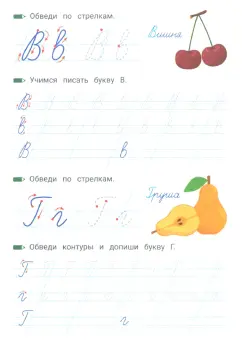 Обведи по стрелкам.
В в В в Вишня
Учимся писать букву В.
В
в
В в
Обведи по стрелкам.
Г г Г г Груша
Обведи контуры и допиши букву Г.
Г
г
Г г